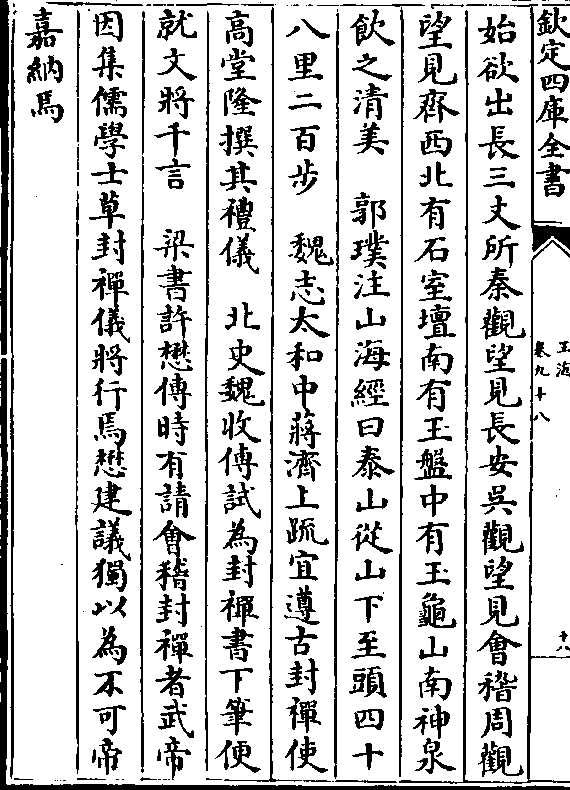 欽定四庫全書
玉海
卷九十八
十八
始欲出長三丈所秦觀望見長安吳觀望見會稽周觀
望見齊西北有石室壇南有玉盤中有玉龜山南神泉
飲之清美　郭璞注山海經曰泰山從山下至頭四十
八里二百步　魏志太和中蔣濟上疏宜遵古封禪使
高堂隆撰其禮儀　北史魏收傳試為封禪書下筆便
就文將千言　梁書許懋傳時有請會稽封禪者武帝
因集儒學士草封禪儀將行焉懋建議獨以為不可帝
嘉納焉